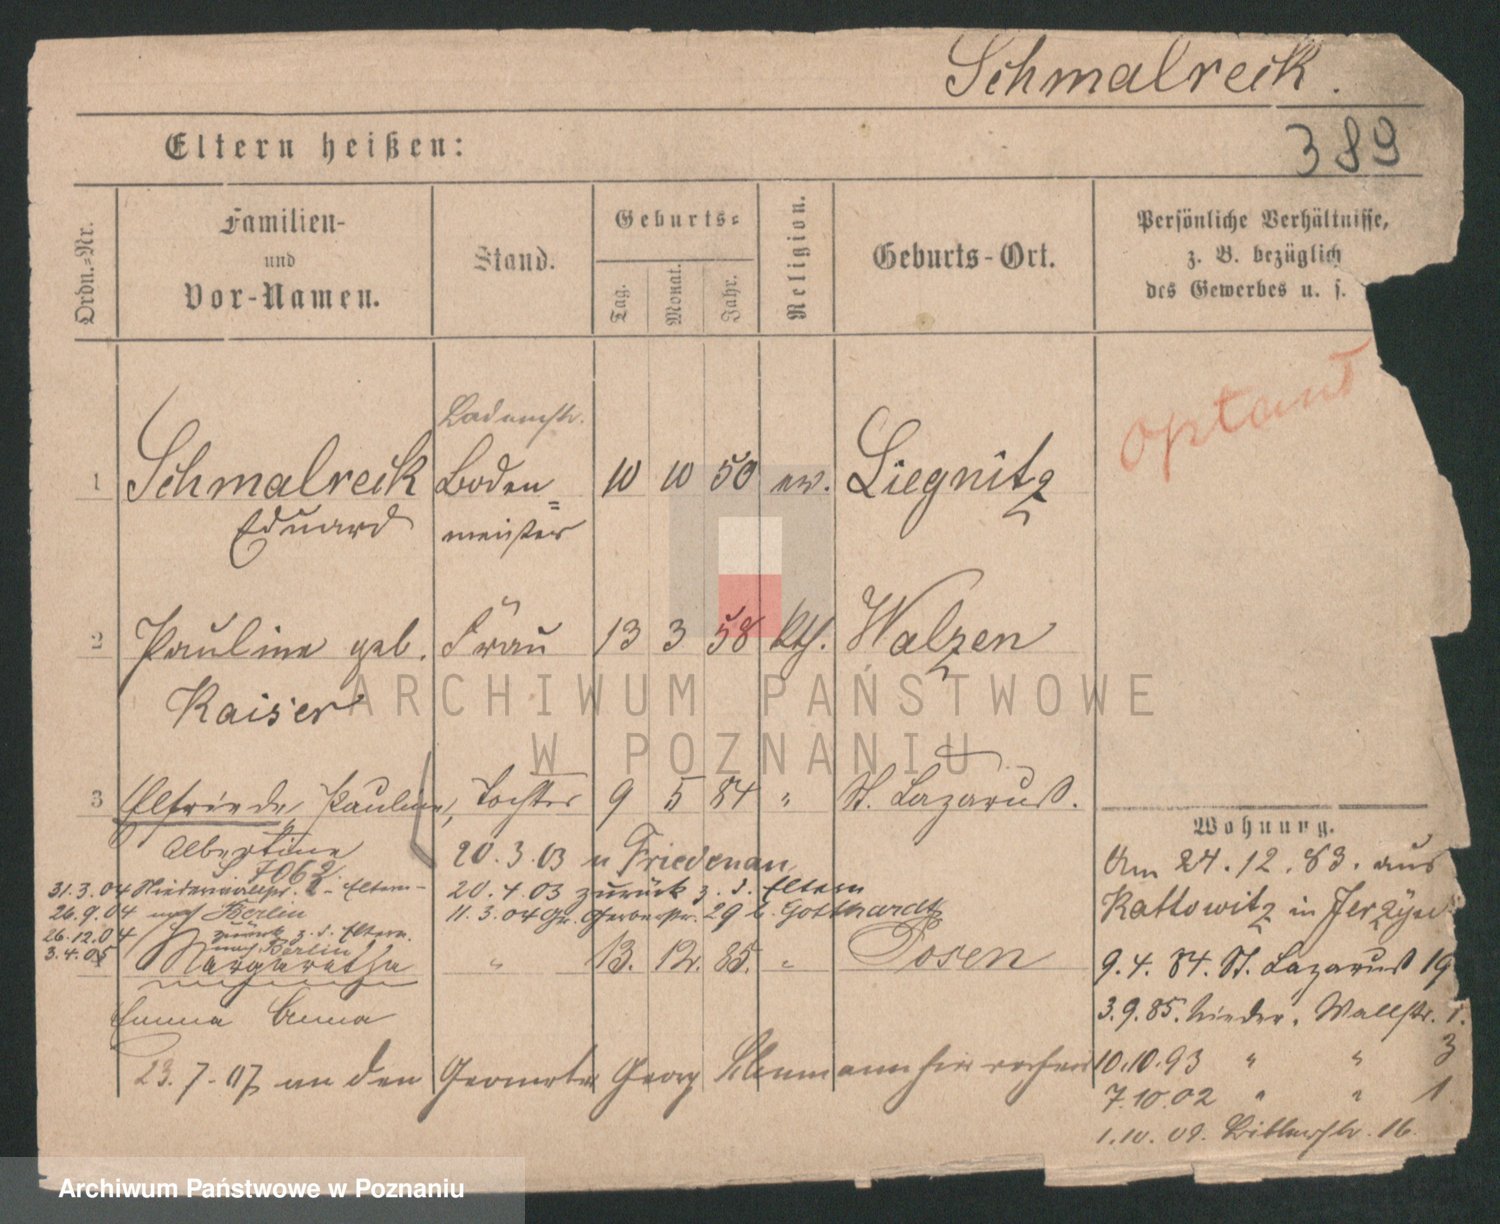 Schmalreck.
389
Eltern heißen:
Ordn.-Nr.
Familien-
und
Vor-Namen.
Stand.
Geburts-
Tag.
Monat.
Jahr.
Religion.
Geburts-Ort.
Persönliche Verhältnisse,
z. B. bezüglich
des Gewerbes u. s.
Optant
Lademstr.
1 Schmalreck Boden= 10 10 50 ev. Liegnitz
Eduard meister
2 Pauline geb. Frau 13 3 58 kth. Walzen
Kaiser
3 Elfriede, Pauline, Tochter 9 5 84 " St. Lazarus.
Albertine
S. 7062.
20.3.03 n Friedenau
31.3.04 Niederwallstr. 2 - Eltern - 20.4.03 zurück z. d. Eltern
26.9.04 nach Berlin 11.3.04 Gr. Gerberstr. 29 b. Gotthardt
26.12.04 zurück z. d. Eltern.
3.4.05 nach Berlin
4 Margarethe " 13. 12. 85. " Posen
Emma Anna
23.7.07 an den Geometer Georg
Wohnung.
Am 24.12.83. aus
Kattowitz in Jerzyce
9.4.84. St. Lazarus 19
3.9.85. Nieder. Wallstr. 1.
10.10.93 " " 3
7.10.02 " " 1.
1.10.09. 16.
ARCHIWUM PAŃSTWOWE
W POZNANIU
Archiwum Państwowe w Poznaniu